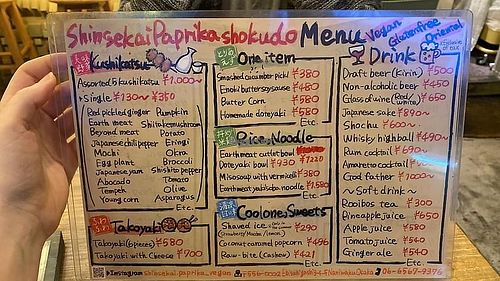 Shinsekai Paprika shokudo Menu
Vegan
Glutenfree
Oriental
Kushikatsu
Assorted 5 kushikatsu ¥1.000~
Single ¥130~¥350
Red pickled ginger Pumpkin
Earth meat Shiitake mushroom
Beyond meat Potato
Japanese chili pepper Eringi
Mochi Okra
Egg plant Broccoli
Japanese yam Shishito pepper
Abocado Tomato
Tempeh Olive
Young corn Asparagus
Etc.
Takoyaki
Takoyaki (6 pieces) ¥580
Takoyaki with Cheese ¥700
One item
Smashed cucumber pickl ¥380
Enoki butter soy sauce ¥480
Butter Corn ¥580
Homemade doteyaki ¥580
Etc.
Rice, Noodle
Earth meat cutlet bowl
Doteyaki bowl ¥930 ¥1220
Miso soup with vermicelli ¥380
Earth meat yakisoba noodle ¥1.580
Etc.
Cool one, Sweets
Shaved ice ¥290
Coconut caramel popcorn ¥496
Raw-bite (Cashew) ¥421
Etc.
Drink
Draft beer (Kirin) ¥500
Non-alcoholic beer ¥450
Glass of wine (Red/white) ¥650
Japanese sake ¥890~
Shochu ¥600~
Whisky highball ¥490~
Rum cocktail ¥690~
Amaretto cocktail
God father ¥1000~
~Soft drink~
Rooibos tea ¥300
Pineapple juice ¥650
Apple juice ¥580
Tomato juice ¥540
Ginger ale ¥540
Etc.
Instagram shinsekai.paprika_vegan 〒556-0002 Ebisuhigashi 3-4-5 Naniwaku Osaka 06-6567-9376